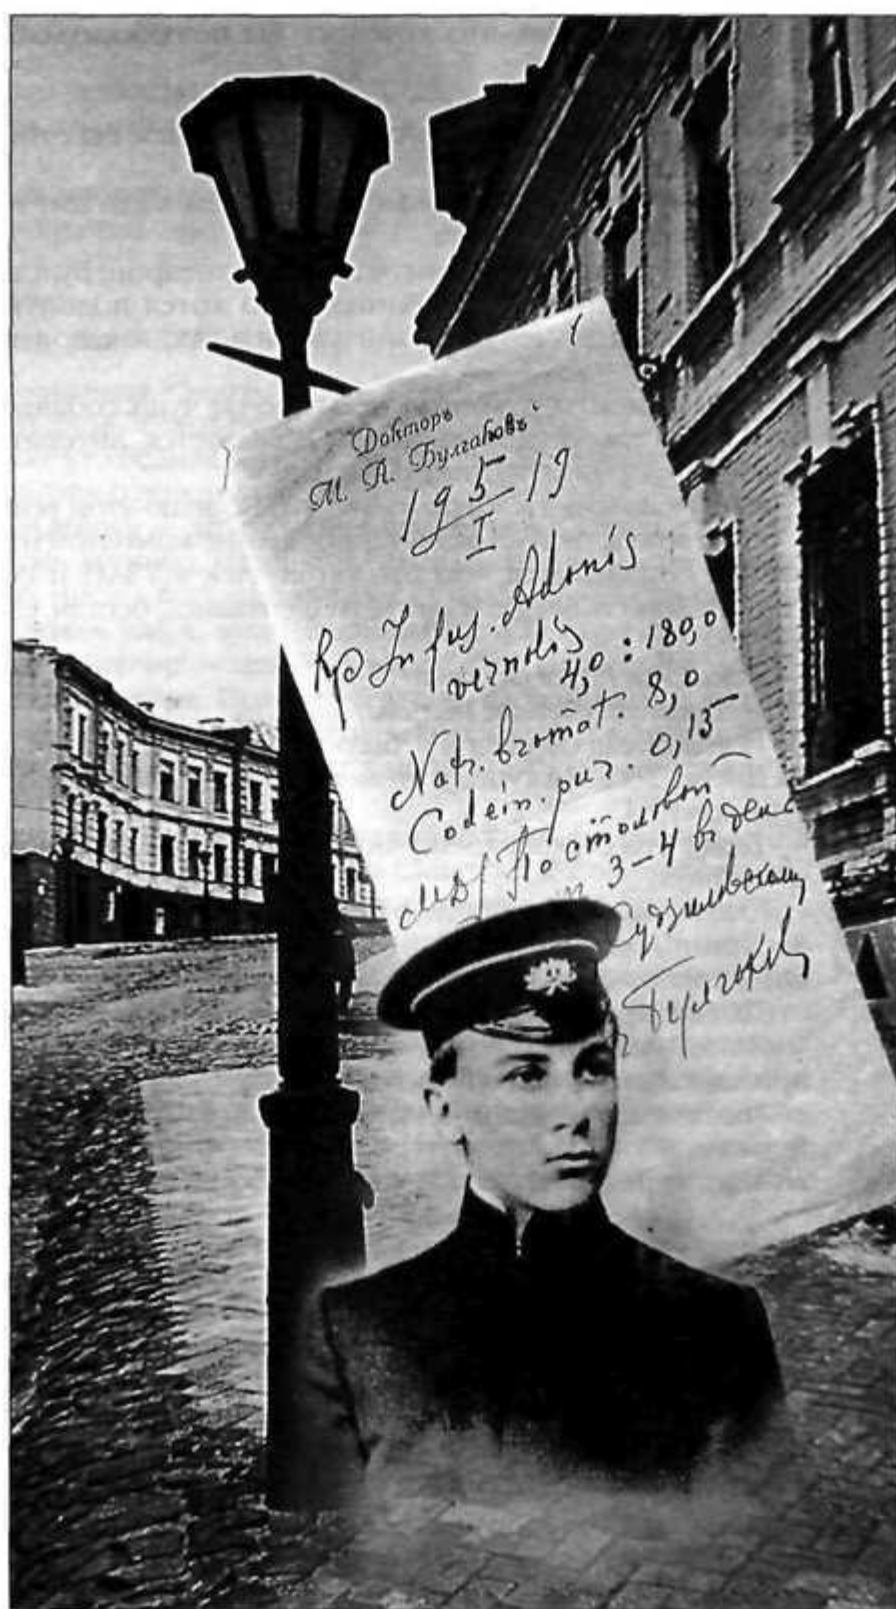 Докторъ
М. А. Булгаковъ
19 5/I 19
Rp Infus. Adonis
vernalis
4,0 : 180,0
Natr. bromat. 8,0
Codein. pur. 0,15
MDS По столовой
3–4 в день
Судзиловскому
Булгаков